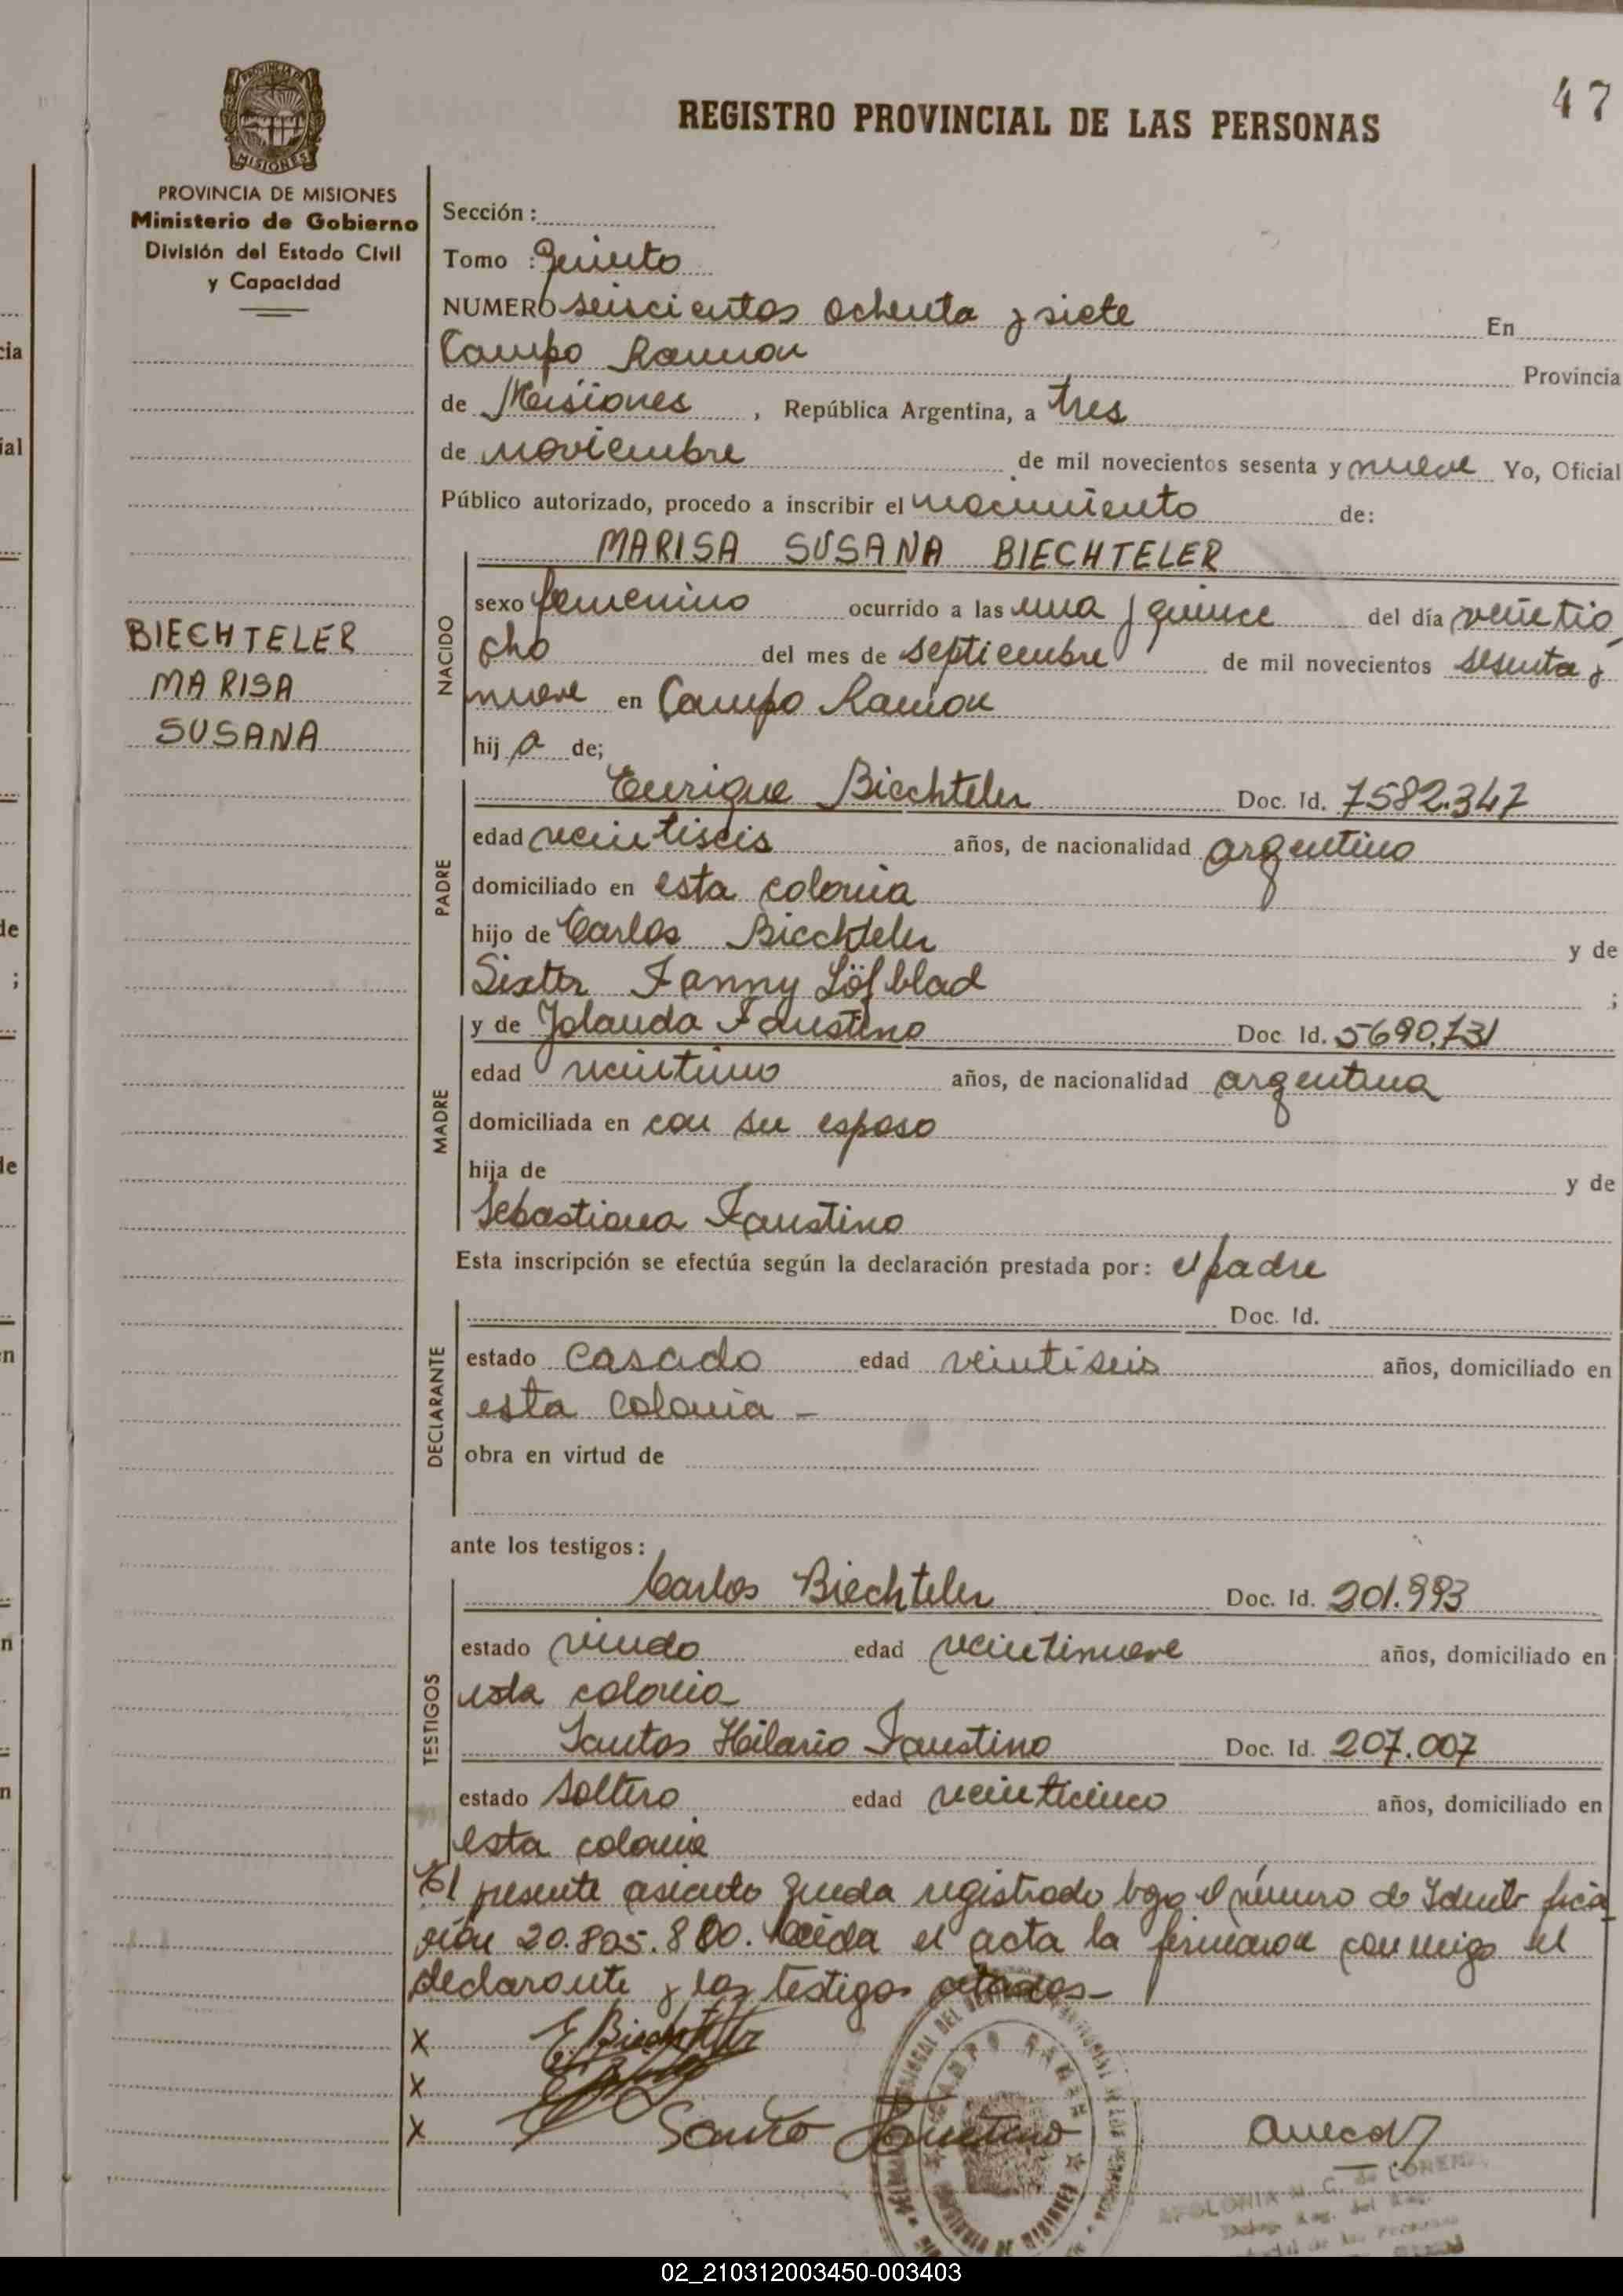 47
REGISTRO PROVINCIAL DE LAS PERSONAS
PROVINCIA DE MISIONES
Ministerio de Gobierno
División del Estado Civil
y Capacidad
BIECHTELER
MARISA
SUSANA
Sección :
Tomo : Quinto
NUMERO seiscientos ochenta y siete En
Campo Ramon Provincia
de Misiones , República Argentina, a tres
de noviembre de mil novecientos sesenta y nueve Yo, Oficial
Público autorizado, procedo a inscribir el nacimiento de:
MARISA SUSANA BIECHTELER
NACIDO
sexo femenino ocurrido a las una y quince del día veintio
cho del mes de septiembre de mil novecientos sesenta y
nueve en Campo Ramon
hij a de;
PADRE
Enrique Biechteler Doc. Id. 7582.347
edad veintiseis años, de nacionalidad argentino
domiciliado en esta colonia
hijo de Carlos Biechteler y de
Sixter Fanny Löfblad ;
MADRE
y de Jolanda Faustino Doc. Id. 5690.731
edad veintiuno años, de nacionalidad argentina
domiciliada en con su esposo
hija de y de
Sebastiana Faustino
Esta inscripción se efectúa según la declaración prestada por: el padre
DECLARANTE
Doc. Id.
estado casado edad veintiseis años, domiciliado en
esta colonia -
obra en virtud de
ante los testigos:
TESTIGOS
Carlos Biechteler Doc. Id. 201.993
estado viudo edad veintinueve años, domiciliado en
esta colonia
Santos Hilario Faustino Doc. Id. 207.007
estado soltero edad veinticinco años, domiciliado en
esta colonia
El presente asiento queda registrado bajo el número de Identifica
ción 20.805.800. Leida el acta la firmaron conmigo el
declarante y los testigos citados-
X E. Biechteler
X
X Santo Faustino
CAMPO RAMON
PROVINCIA DE MISIONES
APOLONIA M. C. de LORENZ
02_210312003450-003403